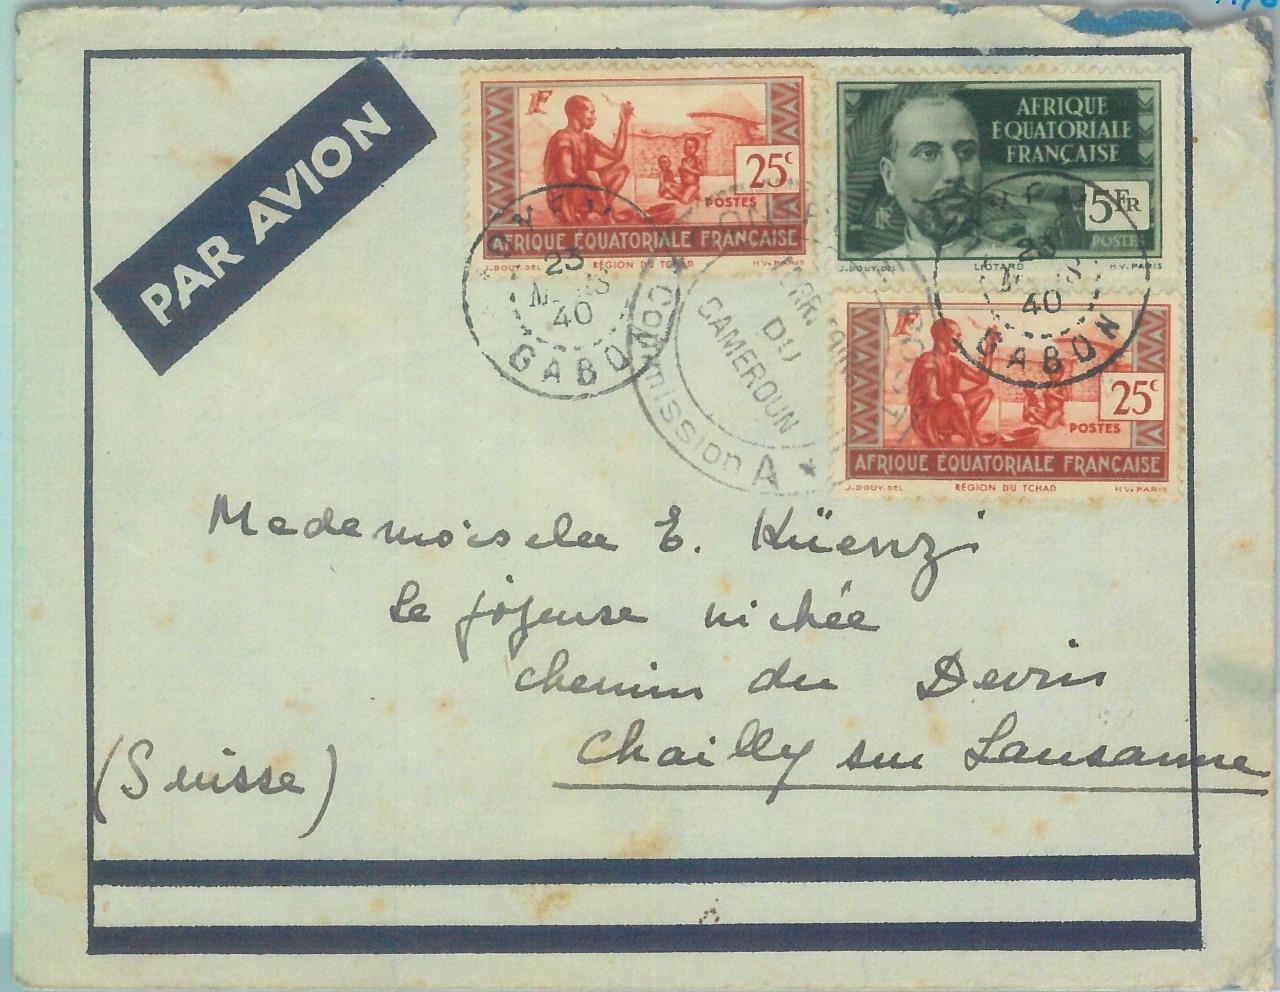 PAR AVION
F
25c
POSTES
AFRIQUE ÉQUATORIALE FRANÇAISE
J. DOUY. DEL RÉGION DU TCHAD H.V. PARIS
RF
AFRIQUE
ÉQUATORIALE
FRANÇAISE
5 FR
POSTES
J. DOUY. DEL LIOTARD H.V. PARIS
F
25c
POSTES
AFRIQUE ÉQUATORIALE FRANÇAISE
J. DOUY. DEL RÉGION DU TCHAD H.V. PARIS
23
40
GABON
23
40
GABON
DU
CAMEROUN
Commission A
Mademoiselle E. Küenzi
La joyeuse nichée
chemin du Devin
Chailly sur Lausanne
(Suisse)